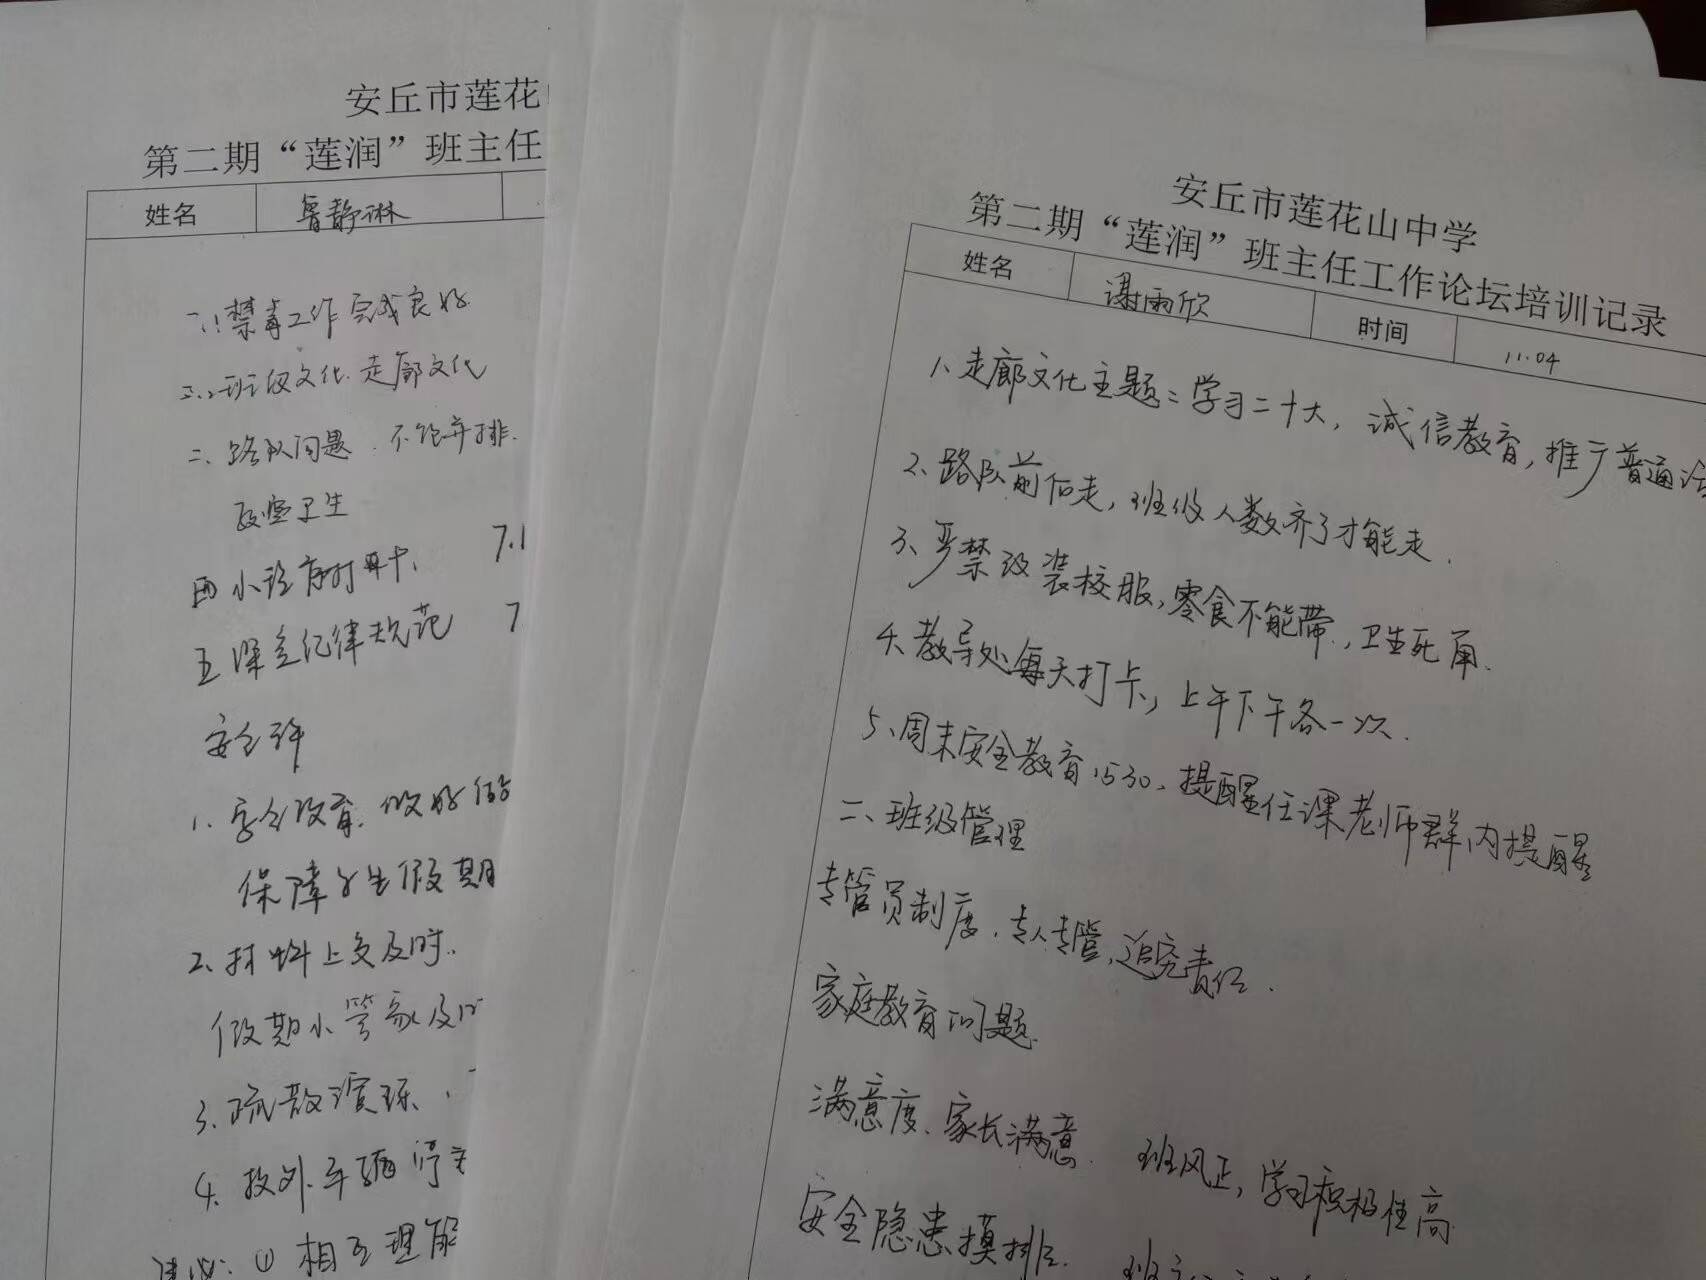 安丘市莲花
第二期“莲润”班主任
姓名 鲁静琳
禁毒工作完成良好
班级文化.走廊文化
二、路队问题.不能并排.
卫生
五 课堂纪律规范 7
安全科
1.安全教育.做好
保障学生假期
2、材料上交及时.
假期小管家及
3.疏散演练、
4.校外车辆停
建议:① 相互理解
安丘市莲花山中学
第二期“莲润”班主任工作论坛培训记录
姓名 谢雨欣 时间 11.04
1、走廊文化主题:学习二十大,诚信教育,推广普通话
2、路队前后走,班级人数齐了才能走.
3、严禁改装校服,零食不能带.,卫生死角.
4、教导处每天打卡,上午下午各一次.
5、周末安全教育1530,提醒任课老师群内提醒
二、班级管理
专管员制度.专人专管,追究责任.
家庭教育问题.
满意度.家长满意. 班风正,学习积极性高
安全隐患摸排.